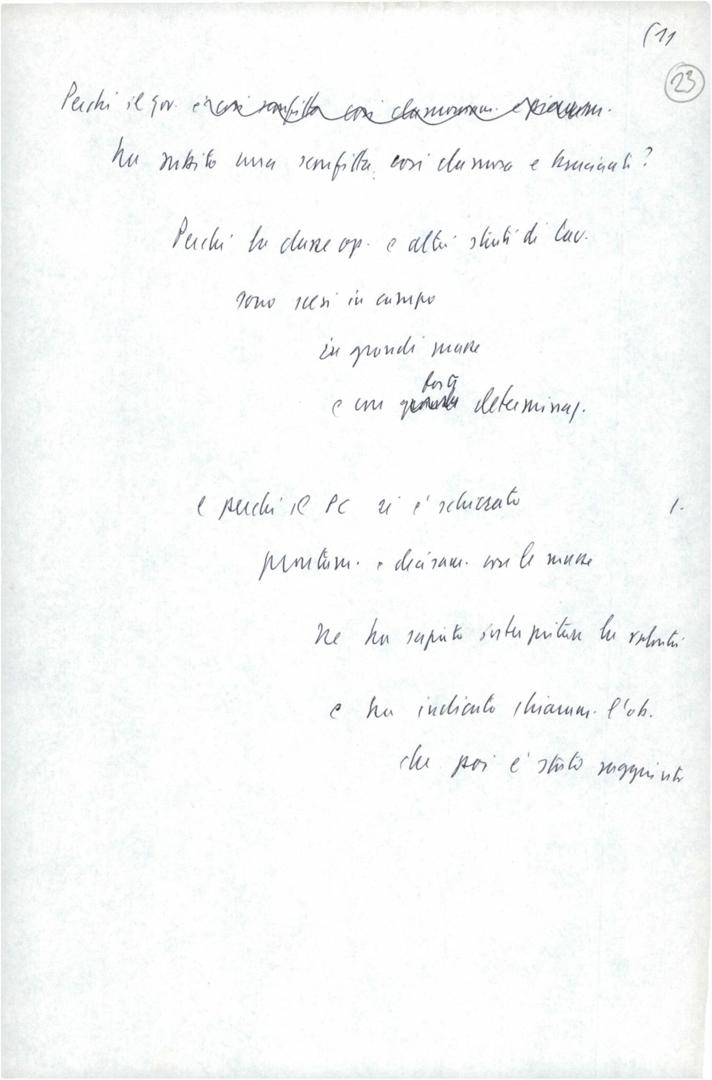 (11
23
Perché il gov. è così sconfitto così clamorosam. e
ha subito una sconfitta così clamorosa e bruciante?
Perché la classe op. e altri strati di lav.
sono scesi in campo
in grandi masse
forte
e con grande determinaz.
e perché il PC si è schierato 1.
prontam. e decisam. con le masse
ne ha saputo interpretare la volontà
e ha indicato chiaram. l'ob.
che poi è stato raggiunto